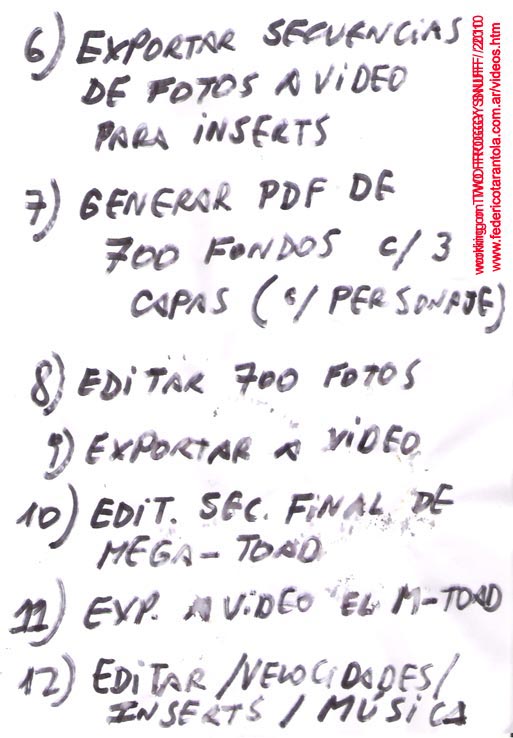 6) EXPORTAR SECUENCIAS
DE FOTOS A VIDEO
PARA INSERTS
7) GENERAR PDF DE
700 FONDOS C/3
CAPAS (C/PERSONAJE)
8) EDITAR 700 FOTOS
9) EXPORTAR A VIDEO
10) EDIT. SEC. FINAL DE
MEGA-TOAD
11) EXP. A VIDEO EL M-TOAD
12) EDITAR/VELOCIDADES/
INSERTS / MÚSICA
www.federicotarantola.com.ar/videos.htm